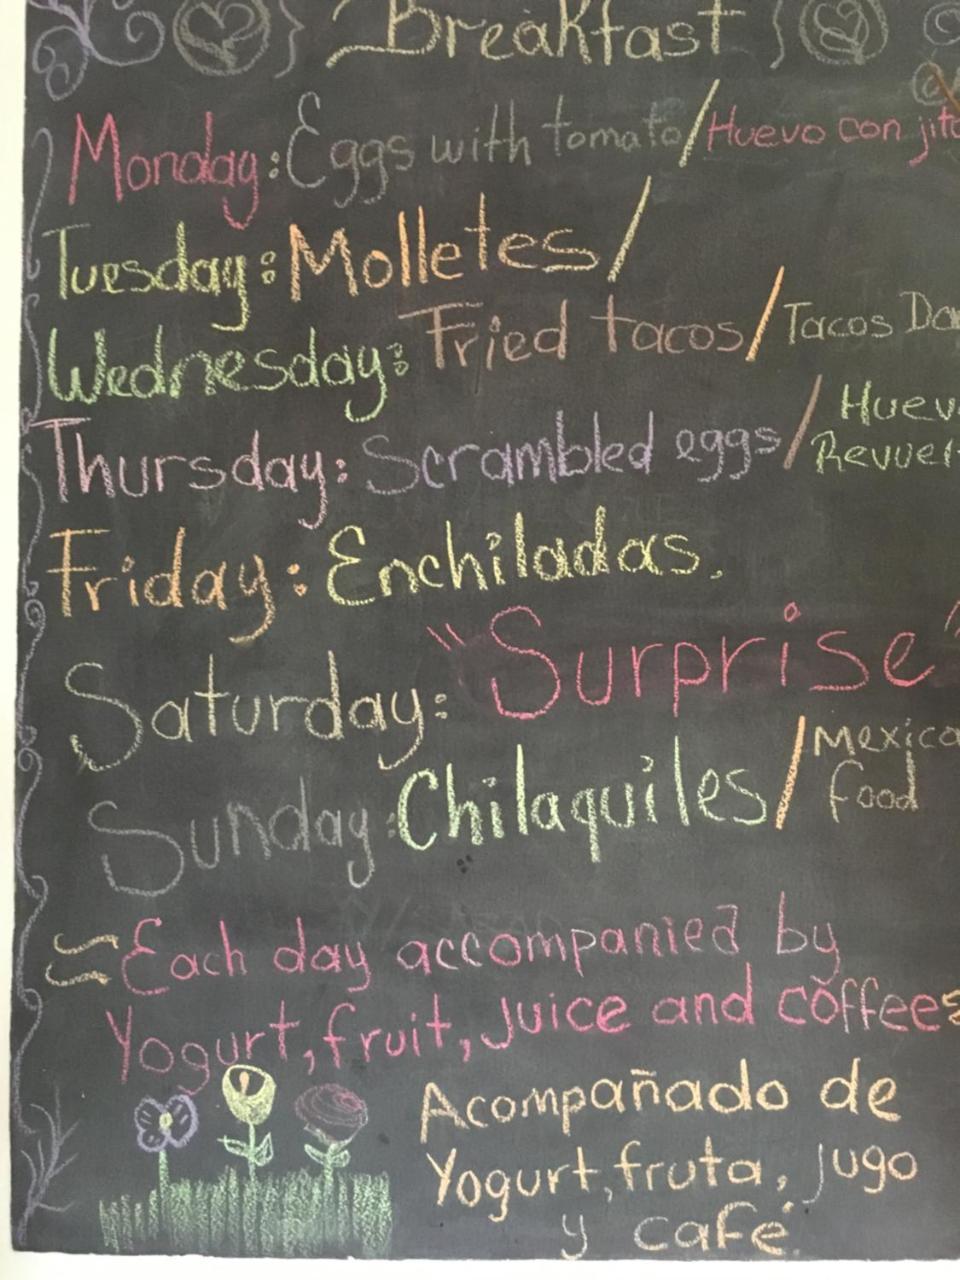 Breakfast
Monday: Eggs with tomato/Huevo con jito
Tuesday: Molletes/
Wednesday: Fried tacos/Tacos
Thursday: Scrambled eggs/
Friday: Enchiladas.
Saturday: "Surprise"
Sunday: Chilaquiles/
food
Each day accompanied by
Yogurt, fruit, juice and coffee
Acompañado de
Yogurt, fruta, jugo
y café.